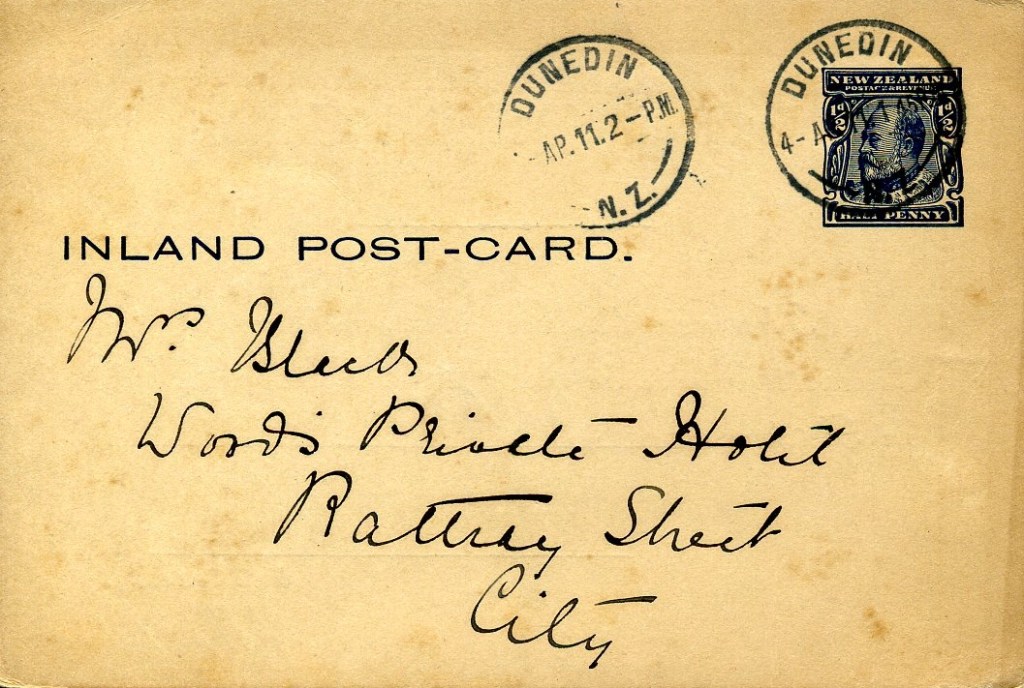 DUNEDIN
AP.11.2-P.M.
N.Z.
DUNEDIN
4-AP.11.1
N.Z.
NEW ZEALAND
POSTAGE & REVENUE
½d ½d
HALF PENNY
INLAND POST-CARD.
Mrs. Black
Wood's Private Hotel
Rattray Street
City